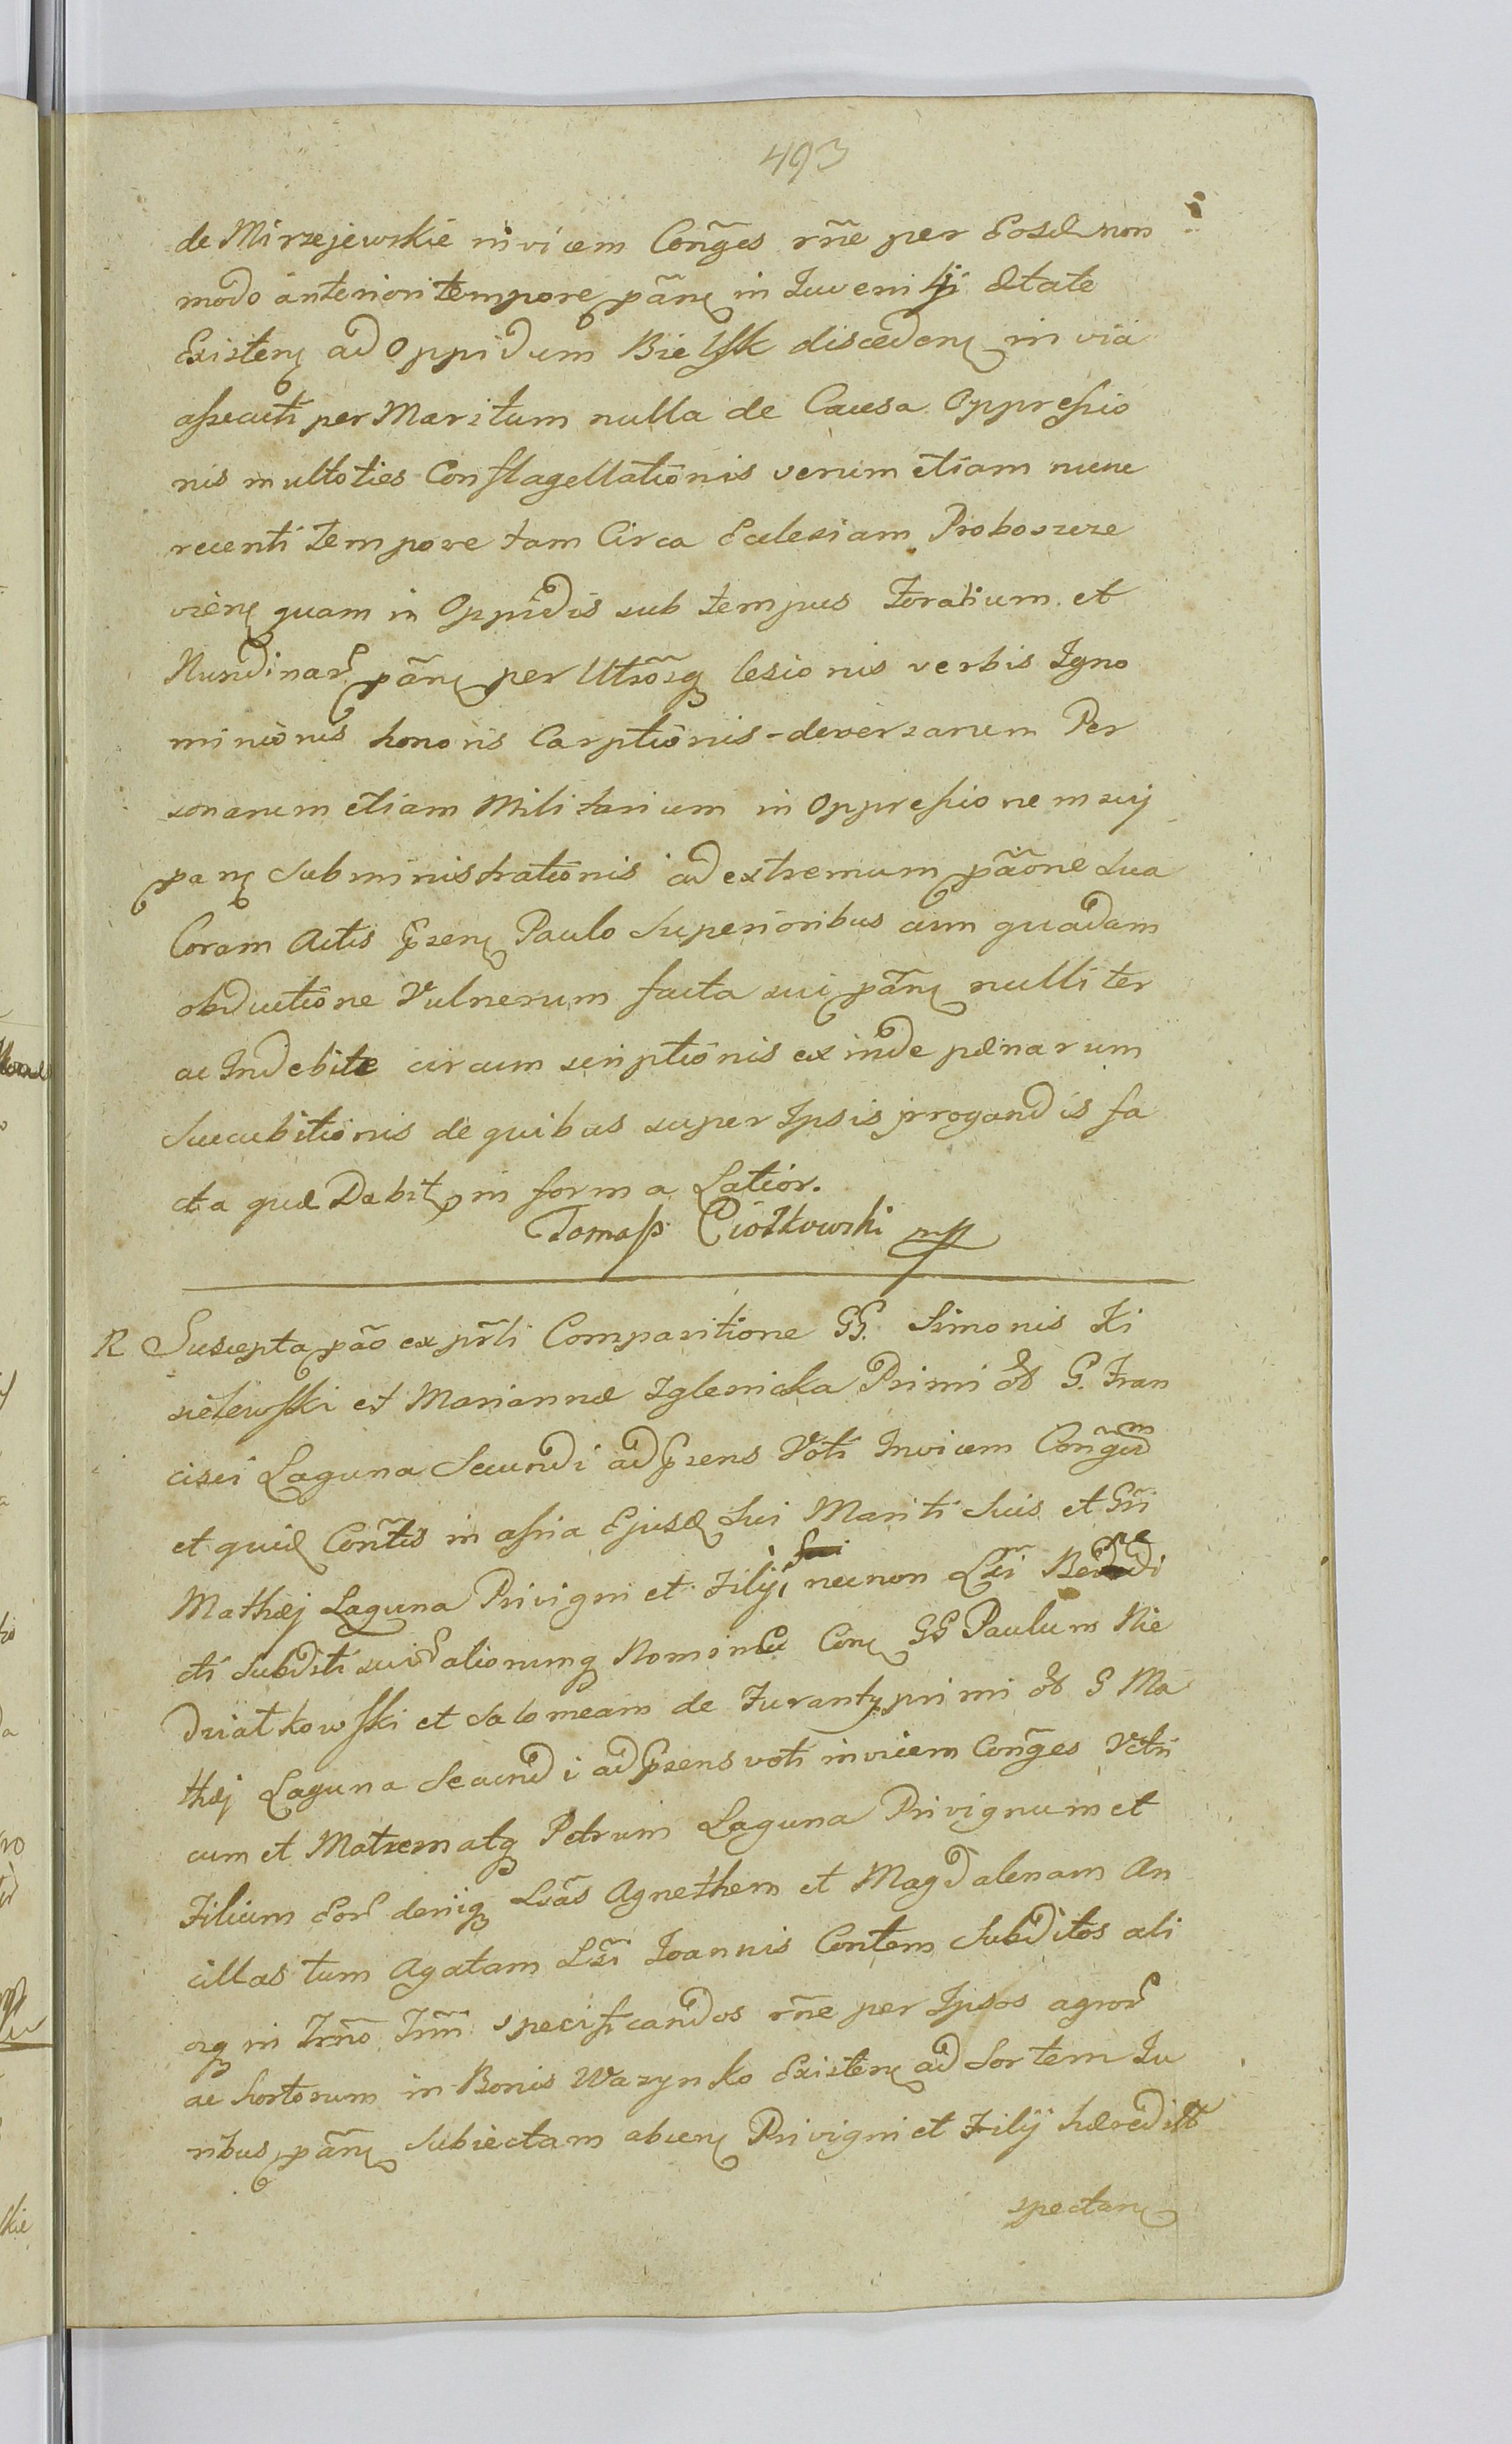 493
de Mirzejewskie invicem Conges rñe per Eosd non
modo anteriori tempore pãnę in Juveni lj ætate
Existenę ad Oppidum Bielsk discedenę in via
assecuti per Maritum nulla de Causa Oppressio
nis multoties Conflagellationis verum etiam nunc
recenti tempore tam Circa Ecclesiam Proboszcze
vienę quam in Oppidis sub tempus Foralium et
Nundinar pãnę per Utrosq lesionis verbis Igno
miniosis honoris Carptionis diversarum Per
sonarum etiam Militarium in Oppressionem sui
panę Subministrationis ad extremum pãone sua
Coram Actis Przenę Paulo Superioribus cum quadam
obductione Vulnerum facta sui pãnę nulliter
ac Indebite circumscriptionis exinde pænarum
Succubitionis de quibus super Ipsis irrogandis fa
cta quæ Dabit in forma Latior.
Tomasz Ciołkowski mp
R Suscepta pão ex prli Comparitione GG. Simonis Ki
sielewski et Mariannæ Iglenicka Primi et G. Fran
cisci Laguna Secundi ad Przens Voti Invicem Congum
et quid Contis in assia Ejusd Sui Mariti Suis et Gri
Mathæj Laguna Privigni et Filij, necnon Lri Bene
cti Subditi sui aliorumq Nomine Conę GG Paulum Nie
działkowski et Salomeam de Zuranty primi et G Ma
thæj Laguna Secundi ad Przens voti invicem Conges Vitri
cum et Matrem atq Petrum Laguna Privignum et
Filium Eor deniq Lras Agnethem et Magdalenam An
cillas tum Agatam Lri Joannis Contem Subditos ali
osq in Trño Trñi specificandos rñe per Ipsos agror
ac hortorum in Bonis Wazynsko Existenę ad Sortem Ju
ribus pãnę Subiectam abienę Privigni et Filij hæredit
spectanę